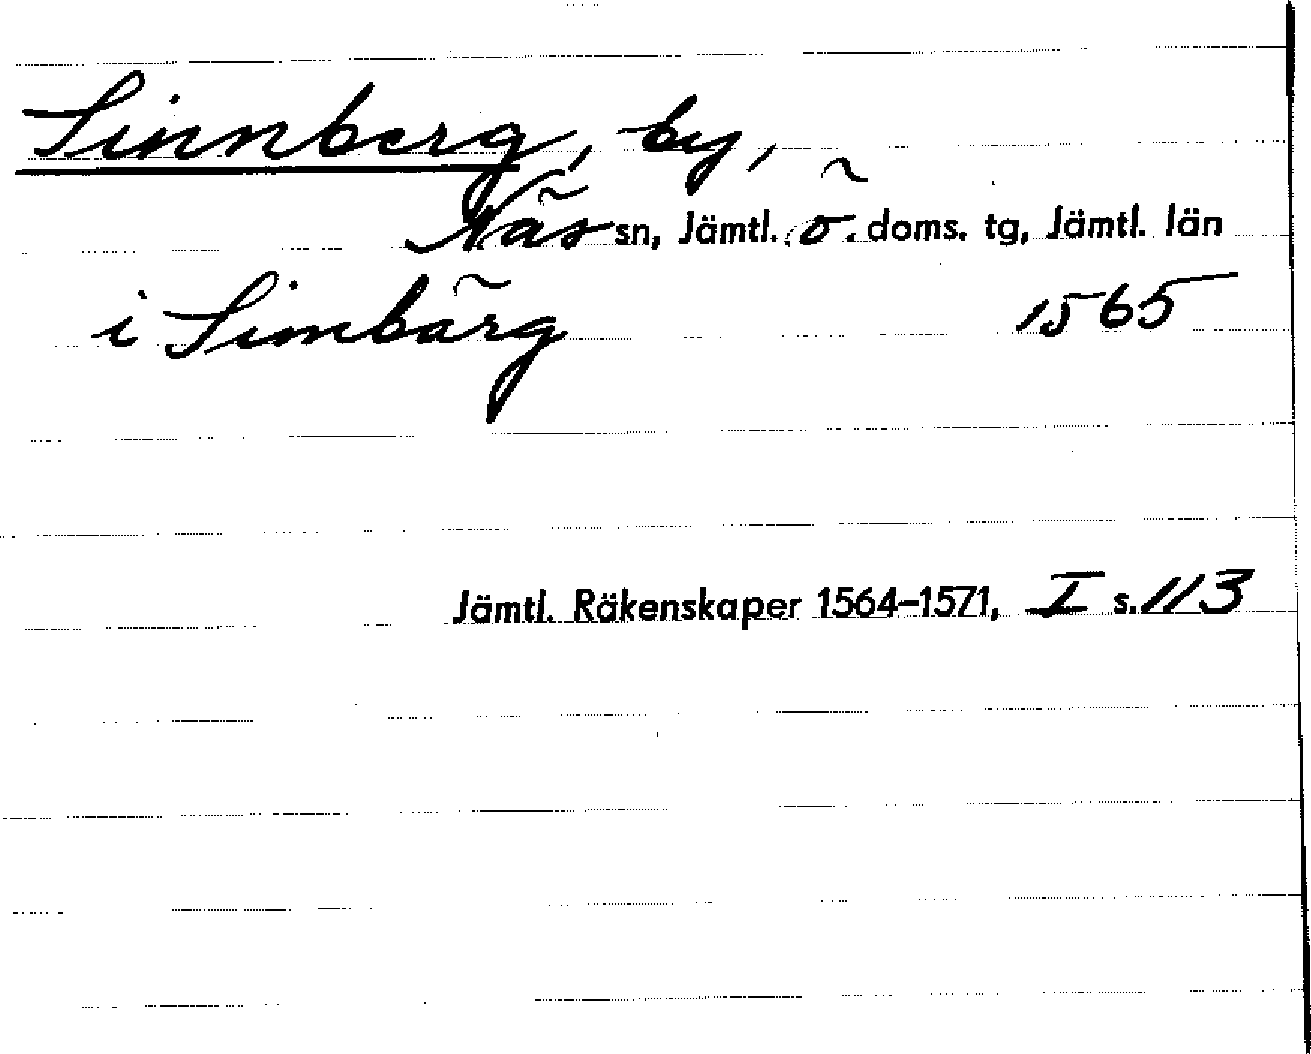 Sinnberg, by,
Näs sn, Jämtl. ö. doms. tg, Jämtl. län
i Simbärg 1565
Jämtl. Räkenskaper 1564-1571, I s. 113